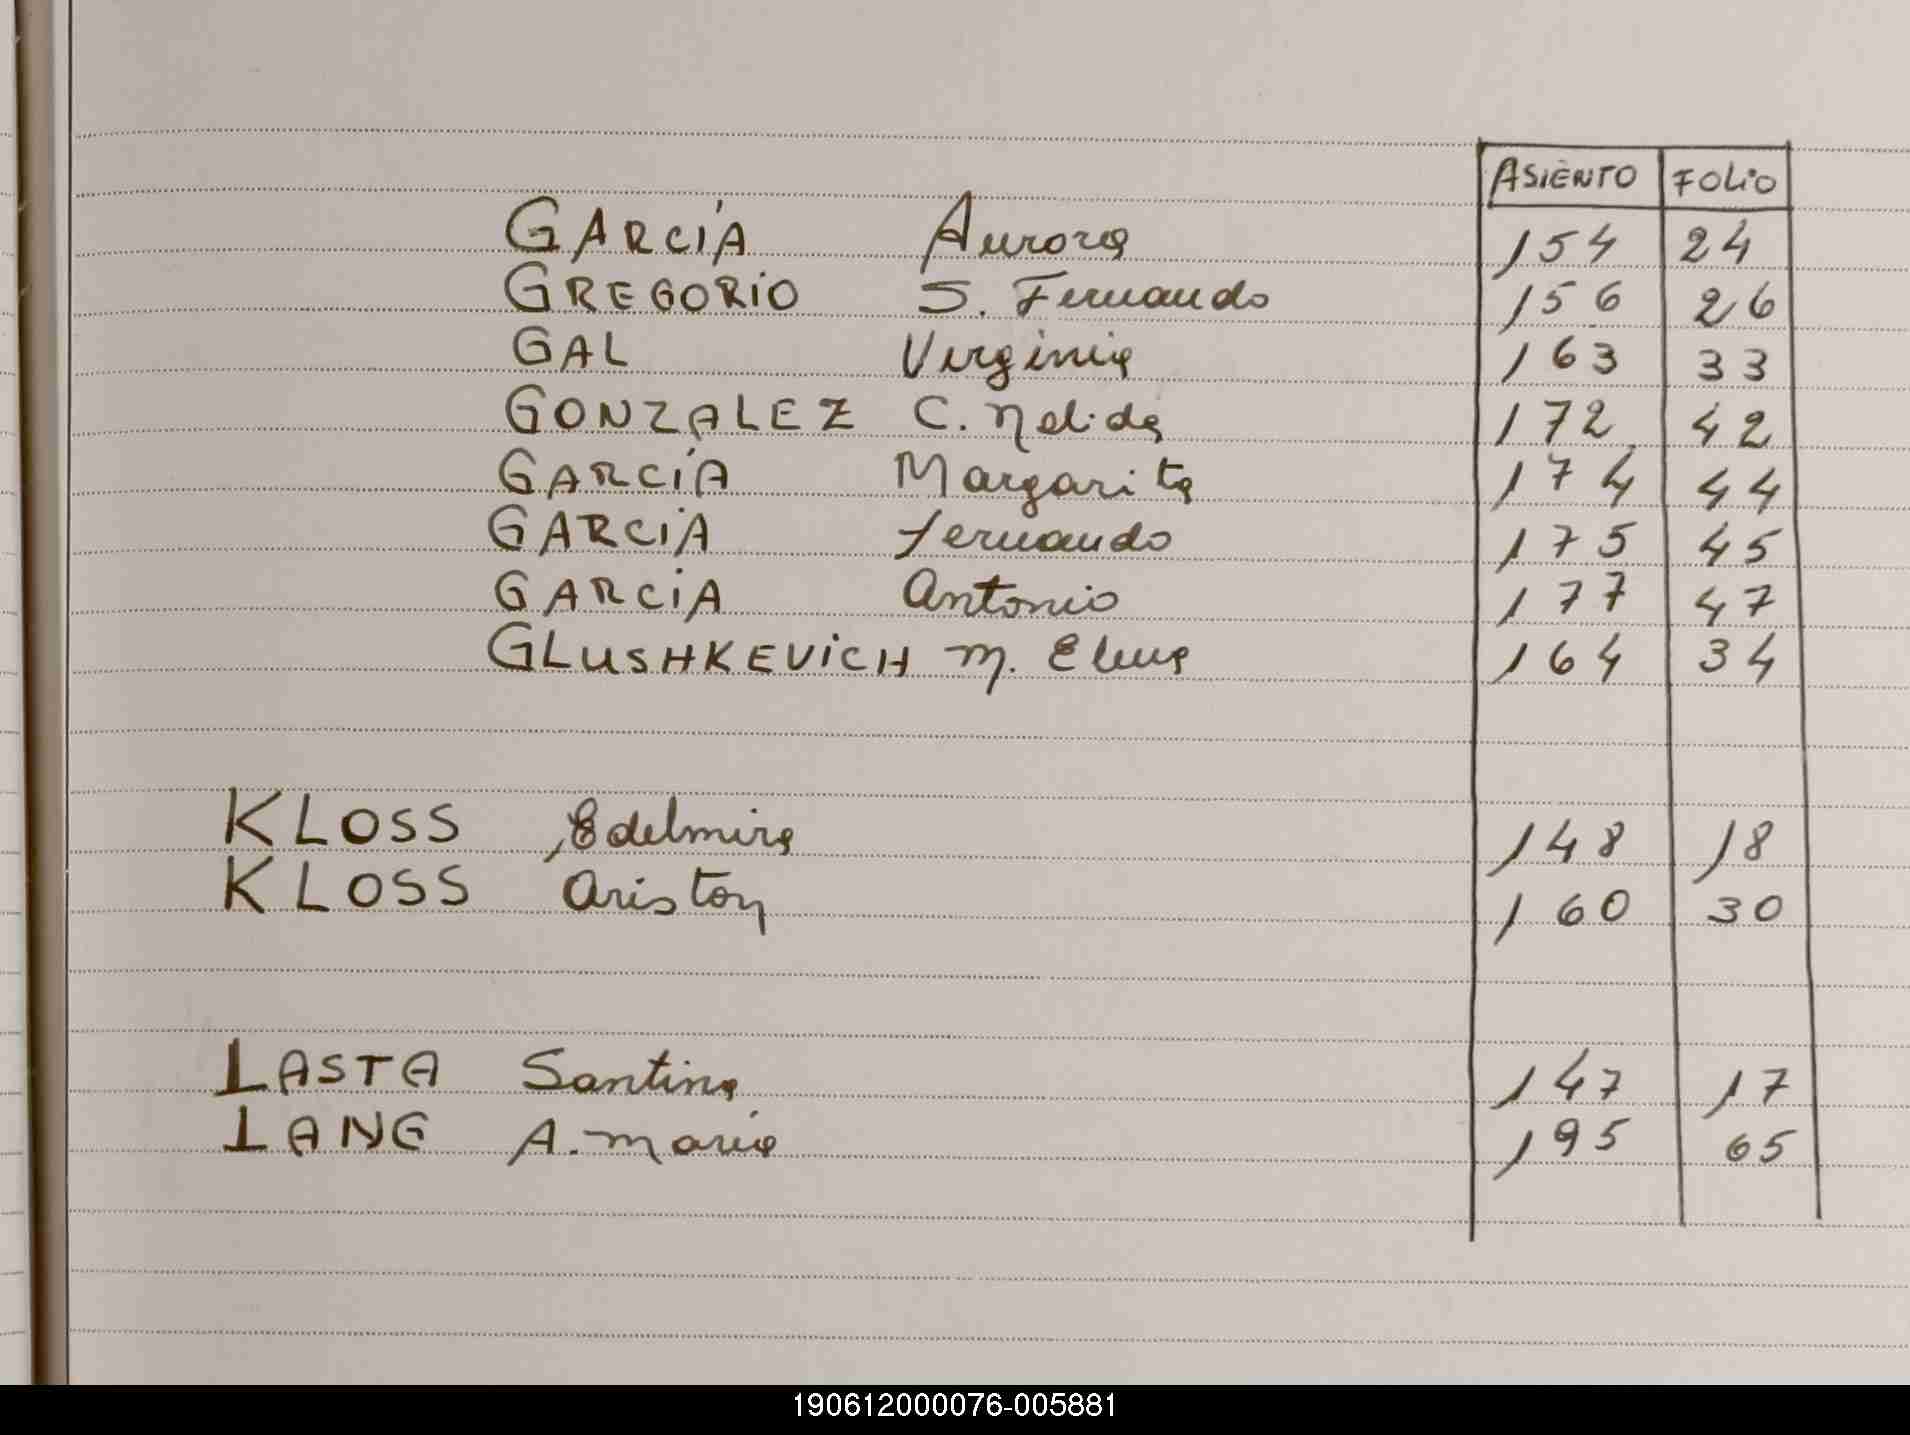 ASIENTO FOLIO
GARCÍA Aurora 154 24
GREGORIO S. Fernando 156 26
GAL Virginia 163 33
GONZALEZ C. Nelida 172 42
GARCÍA Margarita 174 44
GARCÍA Fernando 175 45
GARCÍA Antonio 177 47
GLUSHKEVICH M. Elena 164 34
KLOSS Edelmira 148 18
KLOSS Ariston 160 30
LASTA Santina 147 17
LANG A. Maria 195 65
190612000076-005881